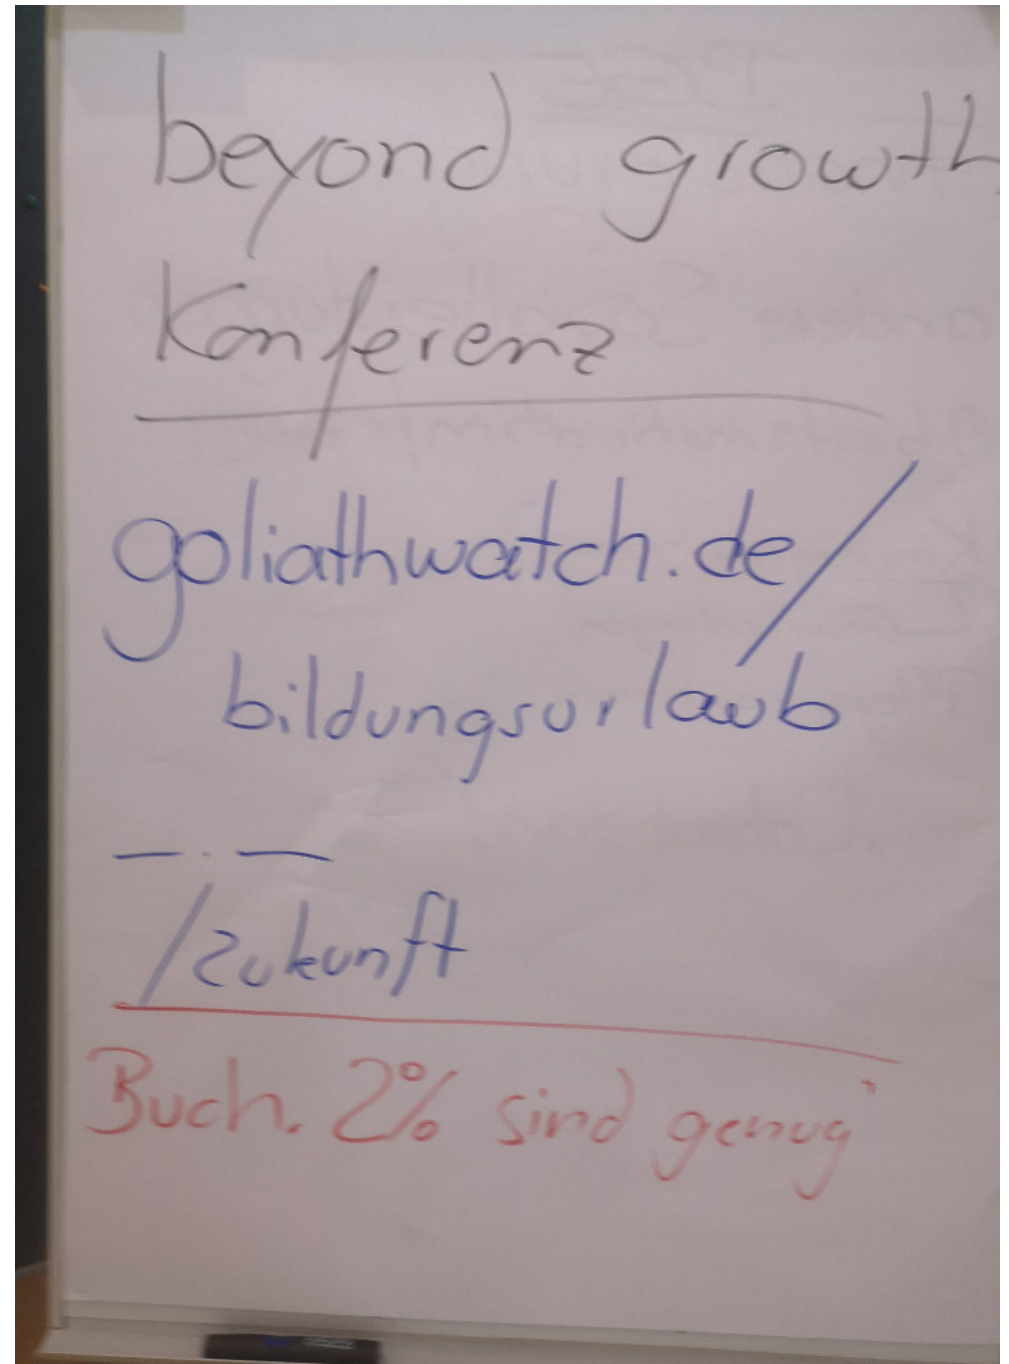 beyond growth
Konferenz
goliathwatch.de/
bildungsurlaub
— . —
/zukunft
Buch. 2% sind genug"